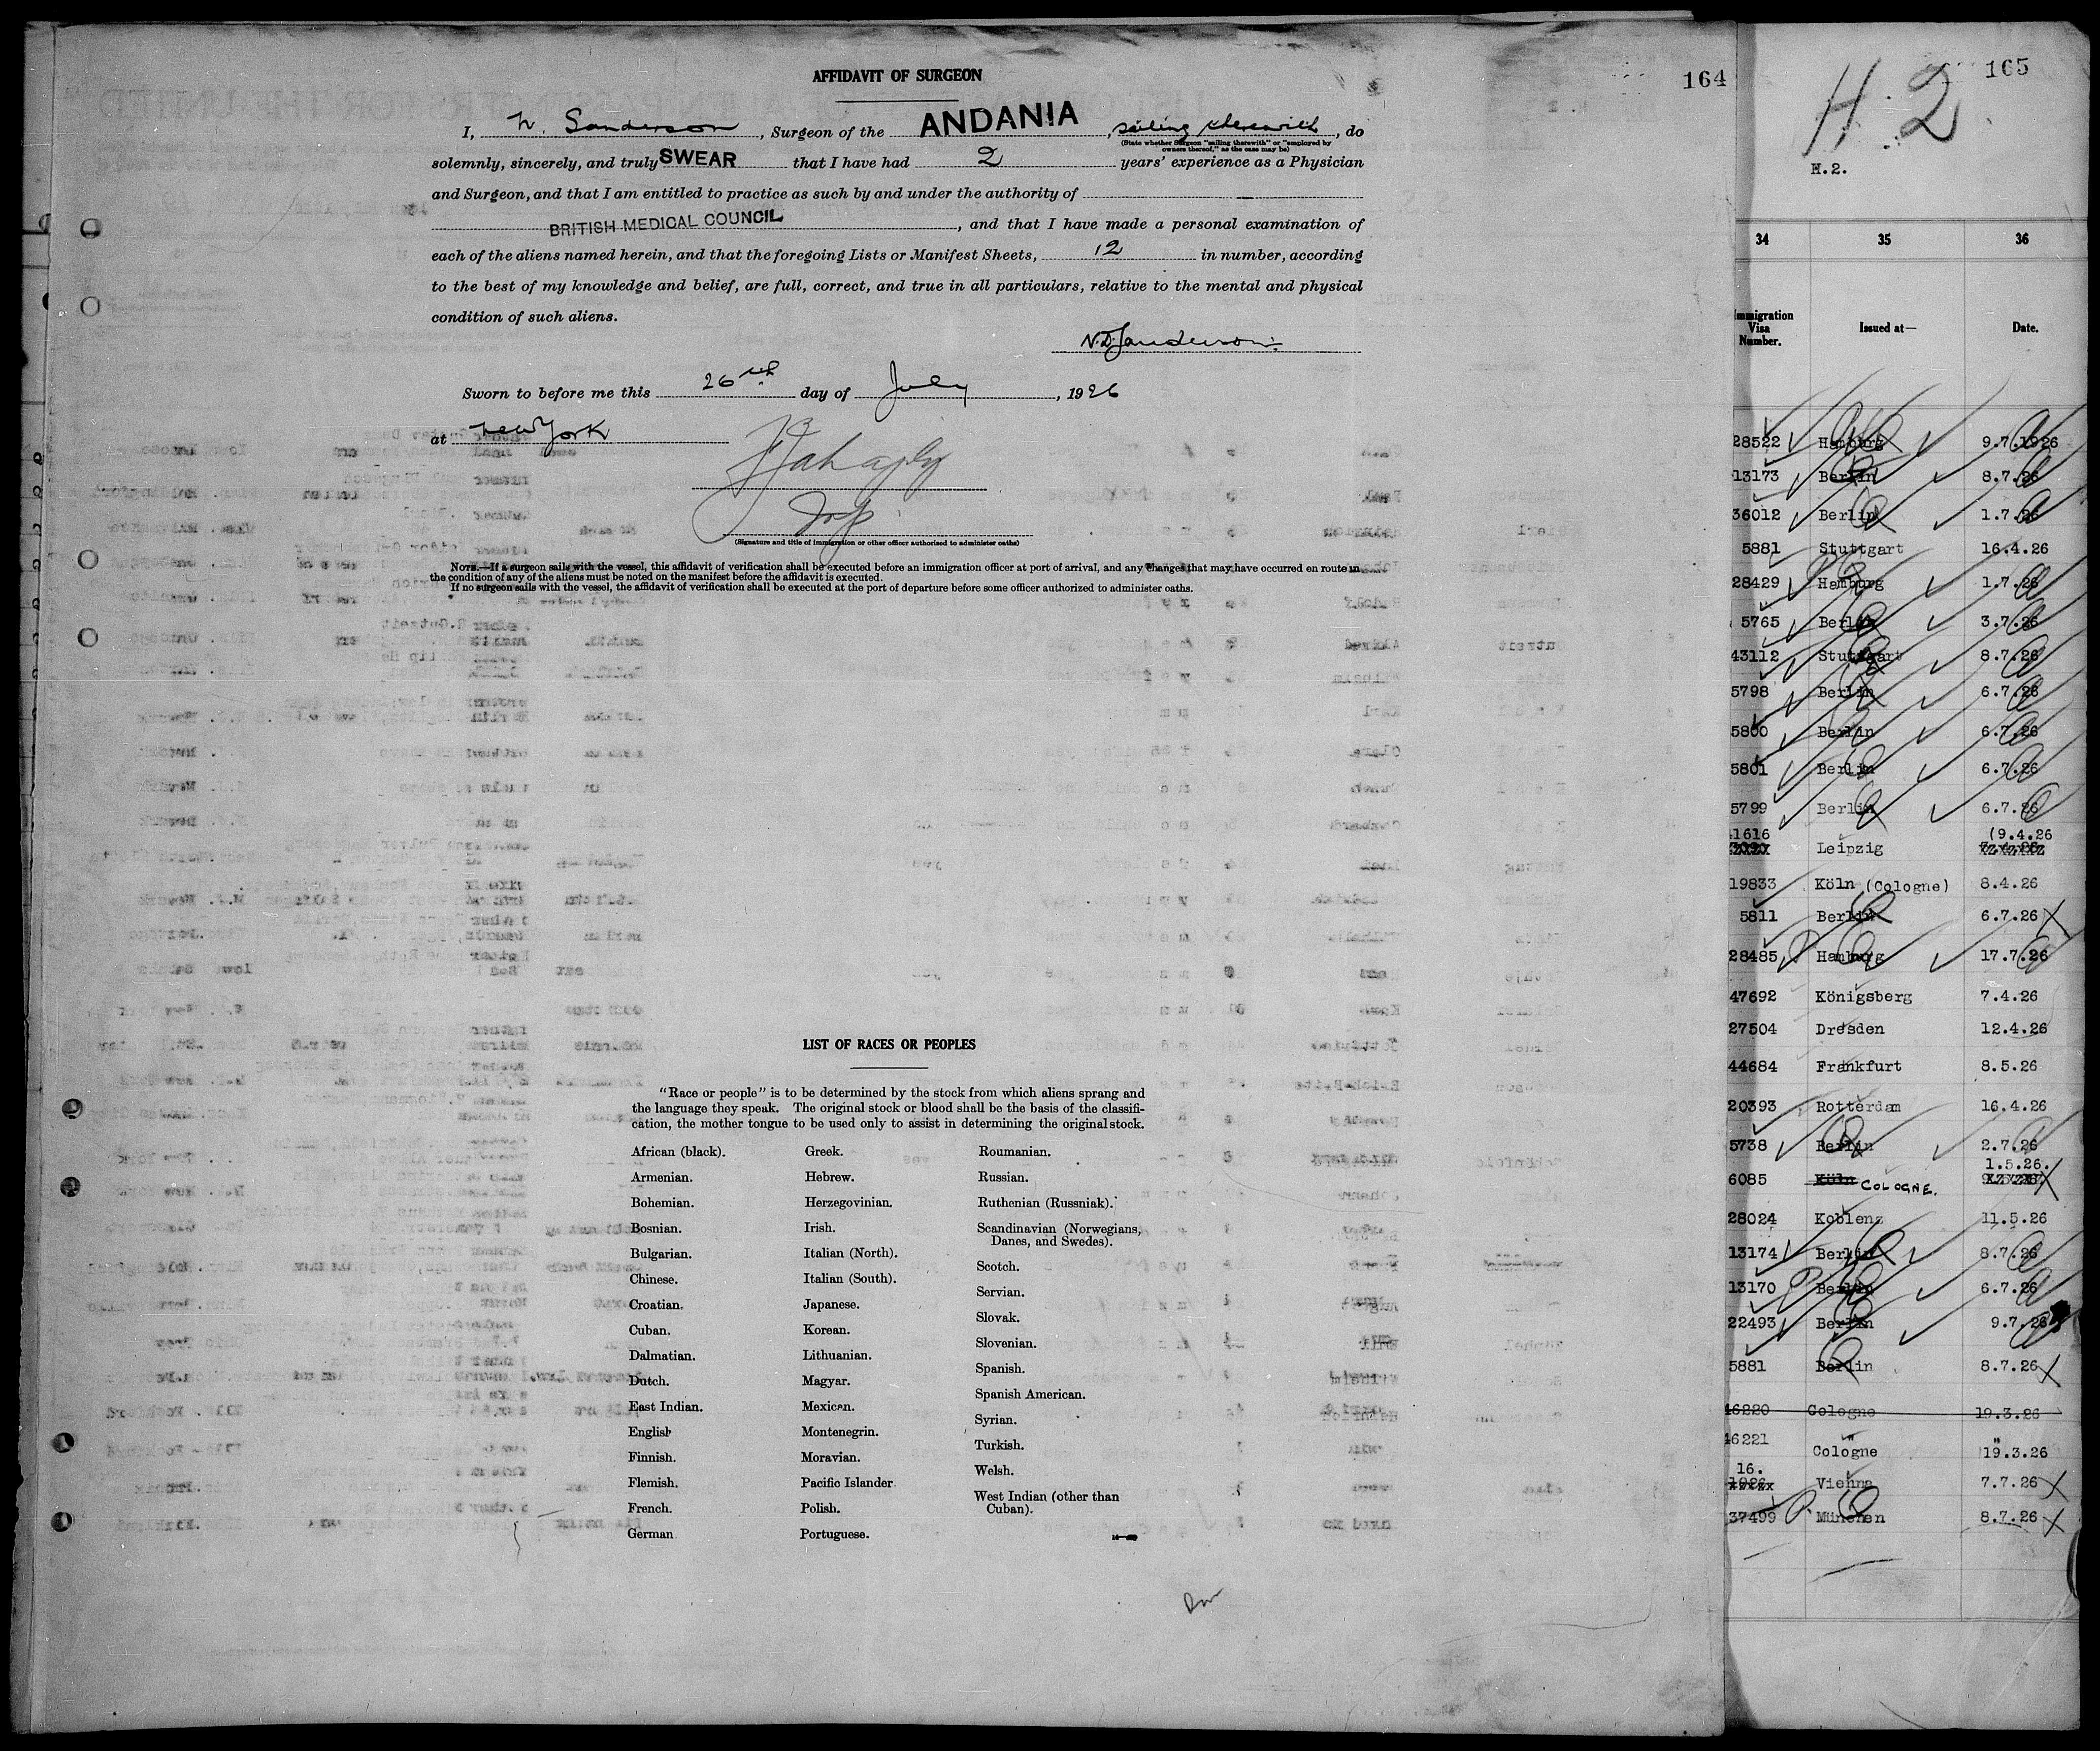 AFFIDAVIT OF SURGEON
164
I, N. Sanderson, Surgeon of the ANDANIA, sailing therewith, do
(State whether Surgeon "sailing therewith" or "employed by
owners thereof," as the case may be)
solemnly, sincerely, and truly SWEAR that I have had 2 years' experience as a Physician
and Surgeon, and that I am entitled to practice as such by and under the authority of
BRITISH MEDICAL COUNCIL, and that I have made a personal examination of
each of the aliens named herein, and that the foregoing Lists or Manifest Sheets, 12 in number, according
to the best of my knowledge and belief, are full, correct, and true in all particulars, relative to the mental and physical
condition of such aliens.
N.D. Sanderson
Sworn to before me this 26th day of July, 1926
at New York
(Signature and title of immigration or other officer authorized to administer oaths)
NOTE.—If a surgeon sails with the vessel, this affidavit of verification shall be executed before an immigration officer at port of arrival, and any changes that may have occurred en route in
the condition of any of the aliens must be noted on the manifest before the affidavit is executed.
If no surgeon sails with the vessel, the affidavit of verification shall be executed at the port of departure before some officer authorized to administer oaths.
LIST OF RACES OR PEOPLES
"Race or people" is to be determined by the stock from which aliens sprang and
the language they speak. The original stock or blood shall be the basis of the classifi-
cation, the mother tongue to be used only to assist in determining the original stock.
African (black).
Armenian.
Bohemian.
Bosnian.
Bulgarian.
Chinese.
Croatian.
Cuban.
Dalmatian.
Dutch.
East Indian.
English
Finnish.
Flemish.
French.
German
Greek.
Hebrew.
Herzegovinian.
Irish.
Italian (North).
Italian (South).
Japanese.
Korean.
Lithuanian.
Magyar.
Mexican.
Montenegrin.
Moravian.
Pacific Islander
Polish.
Portuguese.
Roumanian.
Russian.
Ruthenian (Russniak).
Scandinavian (Norwegians,
Danes, and Swedes).
Scotch.
Servian.
Slovak.
Slovenian.
Spanish.
Spanish American.
Syrian.
Turkish.
Welsh.
West Indian (other than
Cuban).
165
H. 2
H.2.
34 35 36
Immigration
Visa
Number.
Issued at—
Date.
28522 Hamburg 9.7.1926
13173 Berlin 8.7.26
36012 Berlin 1.7.26
5881 Stuttgart 16.4.26
28429 Hamburg 1.7.26
5765 Berlin 3.7.26
43112 Stuttgart 8.7.26
5798 Berlin 6.7.26
5800 Berlin 6.7.26
5801 Berlin 6.7.26
5799 Berlin 6.7.26
1616 Leipzig (9.4.26
19833 Köln (Cologne) 8.4.26
5811 Berlin 6.7.26 X
28485 Hamburg 17.7.26
47692 Königsberg 7.4.26
27504 Dresden 12.4.26
44684 Frankfurt 8.5.26
20393 Rotterdam 16.4.26
5738 Berlin 2.7.26
1.5.26.
6085 Köln COLOGNE. X
28024 Koblenz 11.5.26
13174 Berlin 8.7.26
13170 Berlin 6.7.26
22493 Berlin 9.7.26
5881 Berlin 8.7.26 X
46220 Cologne 19.3.26
46221 " "
Cologne 19.3.26
16.
Vienna 7.7.26 X
37499 P. München 8.7.26 X